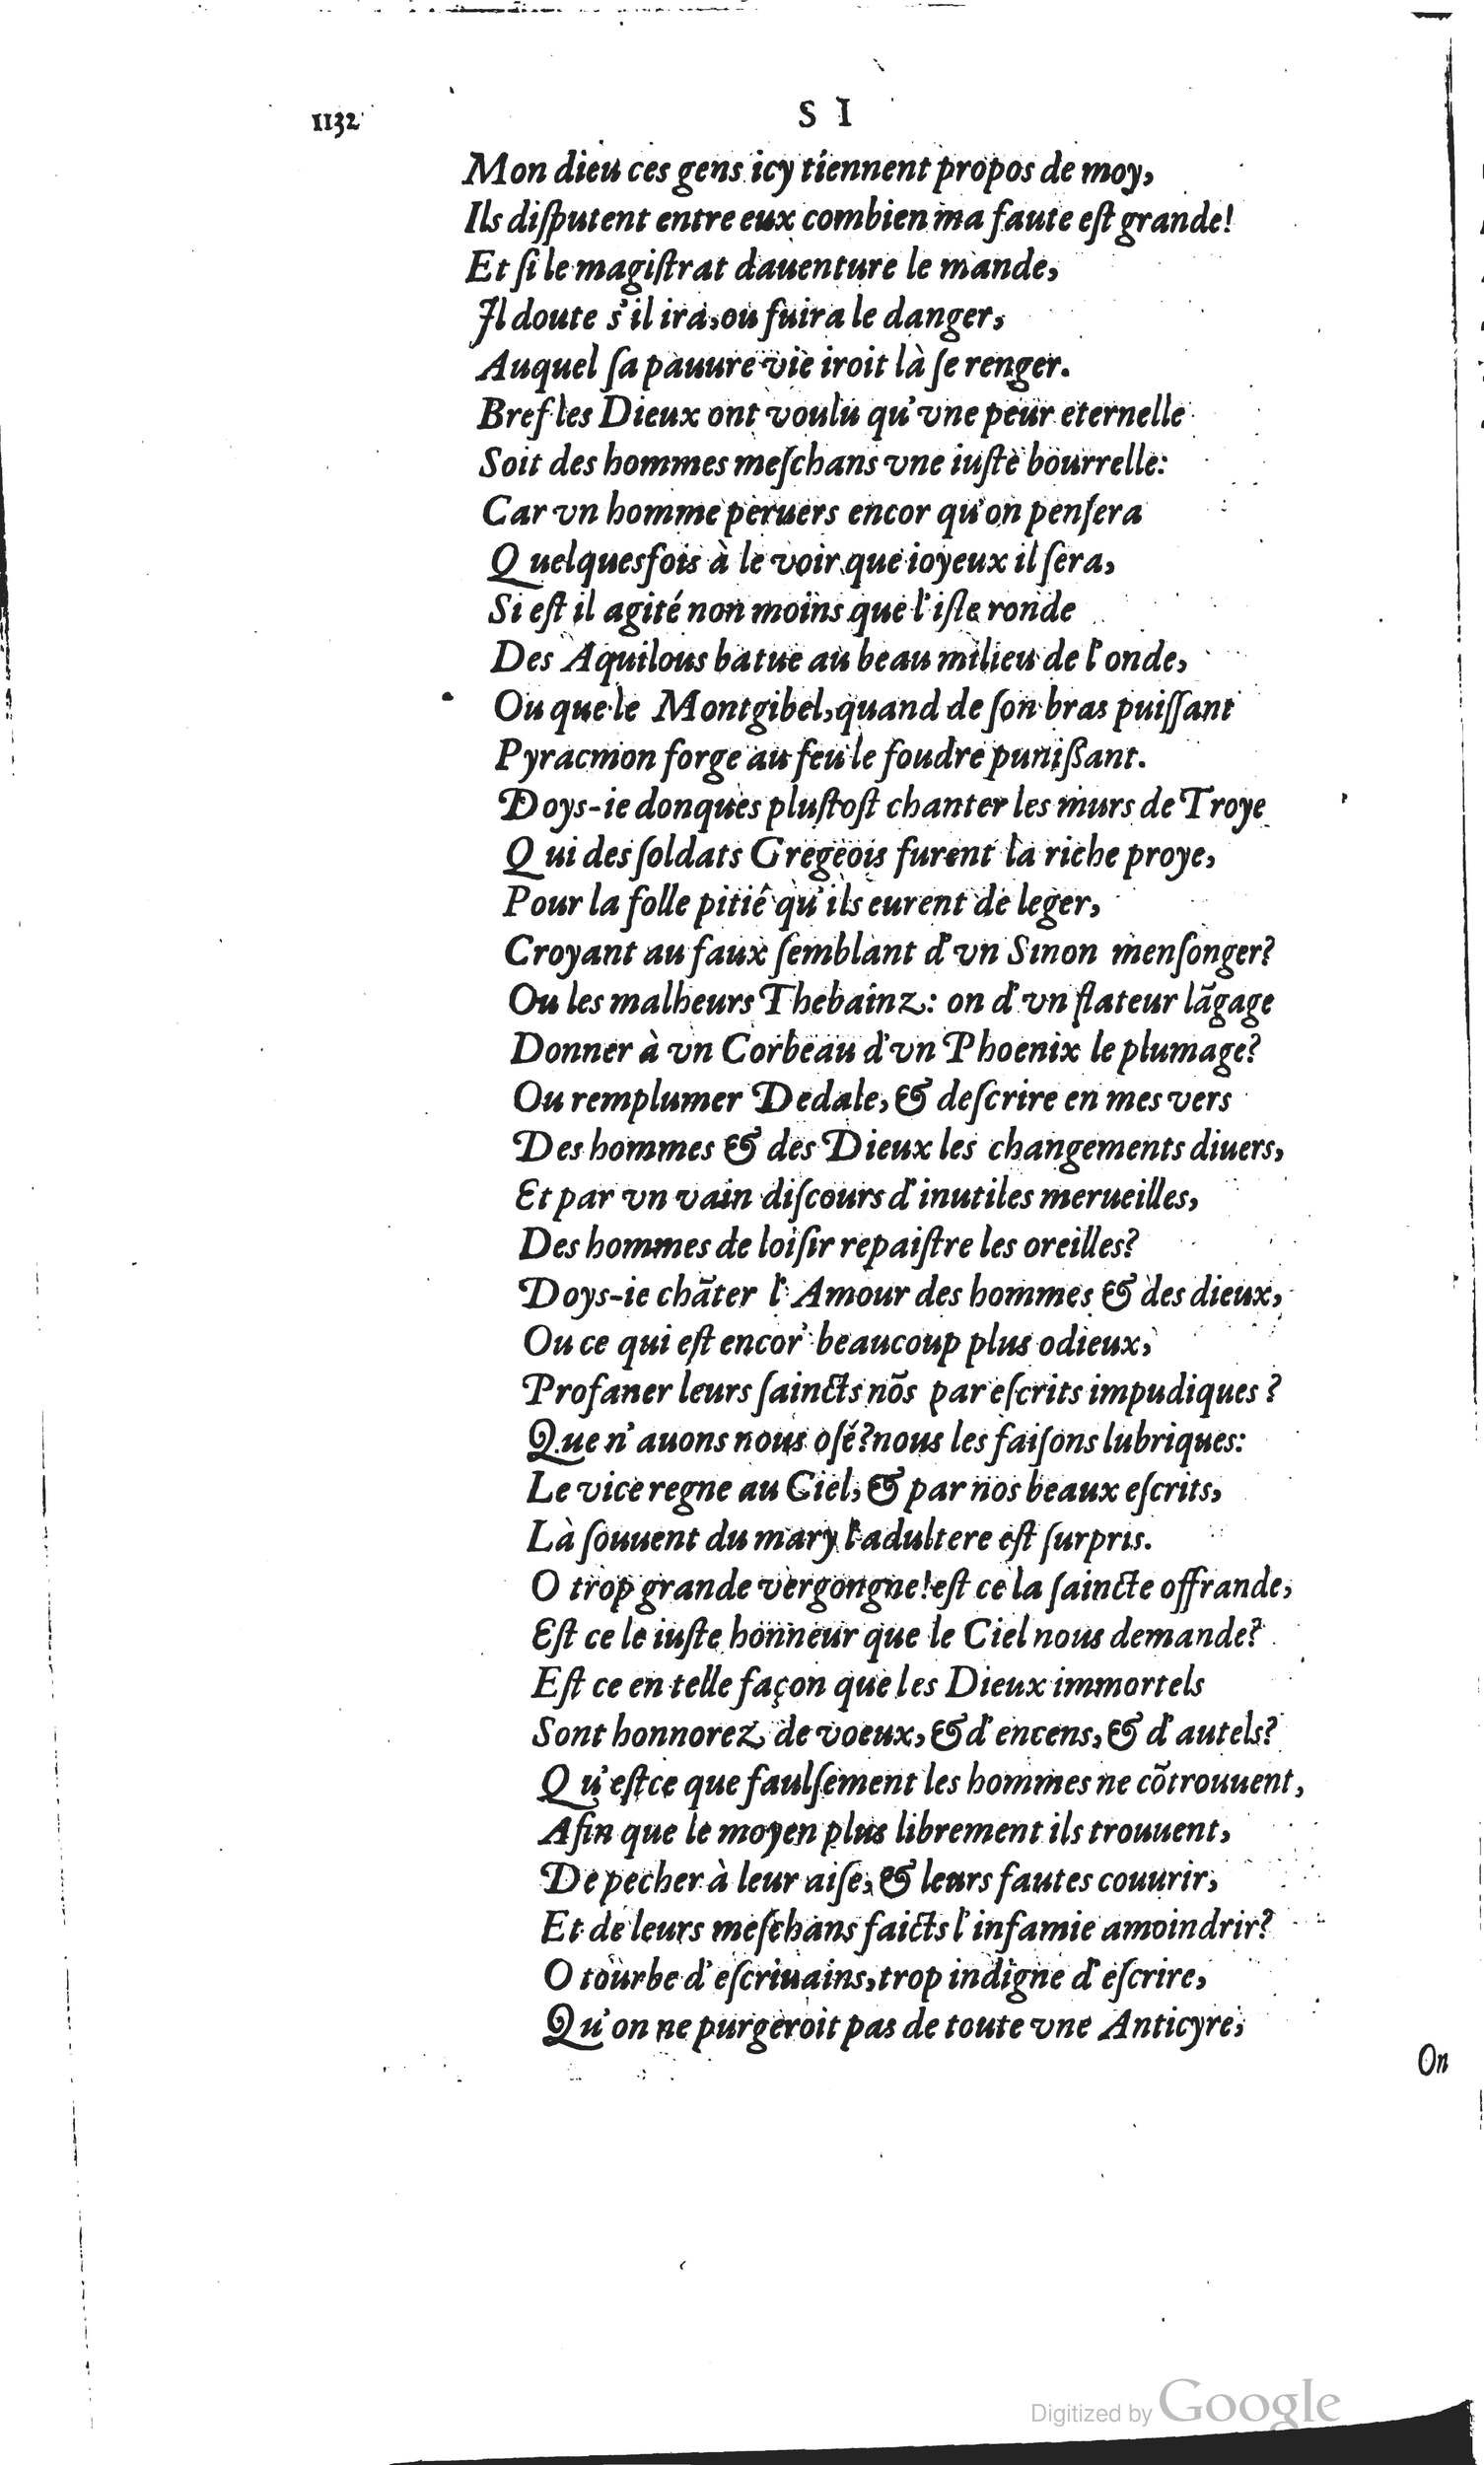 1132
S I
Mon dieu ces gens icy tiennent propos de moy,
Ils diſputent entre eux combien ma faute eſt grande!
Et ſi le magiſtrat dauenture le mande,
Il doute s'il ira, ou fuira le danger,
Auquel ſa pauure vie iroit là ſe renger.
Bref les Dieux ont voulu qu'vne peur eternelle
Soit des hommes meſchans vne iuſte bourrelle:
Car vn homme peruers encor qu'on penſera
Quelquesfois à le voir que ioyeux il ſera,
Si eſt il agité non moins que l'iſle ronde
Des Aquilous batue au beau milieu de l'onde,
Ou que le Montgibel, quand de ſon bras puiſſant
Pyracmon forge au feu le foudre punißant.
Doys-ie donques pluſtoſt chanter les murs de Troye
Qui des ſoldats Gregeois furent la riche proye,
Pour la folle pitiê qu'ils eurent de leger,
Croyant au faux ſemblant d'vn Sinon menſonger?
Ou les malheurs Thebainz: on d'vn flateur lãgage
Donner à vn Corbeau d'vn Phoenix le plumage?
Ou remplumer Dedale, & deſcrire en mes vers
Des hommes & des Dieux les changements diuers,
Et par vn vain diſcours d'inutiles merueilles,
Des hommes de loiſir repaiſtre les oreilles?
Doys-ie chãter l'Amour des hommes & des dieux,
Ou ce qui eſt encor' beaucoup plus odieux,
Profaner leurs ſaincts nõs par eſcrits impudiques?
Que n'auons nous oſé? nous les faiſons lubriques:
Le vice regne au Ciel, & par nos beaux eſcrits,
Là ſouuent du mary l'adultere eſt ſurpris.
O trop grande vergongne! eſt ce la ſaincte offrande,
Eſt ce le iuſte honneur que le Ciel nous demande?
Eſt ce en telle façon que les Dieux immortels
Sont honnorez de voeux, & d'encens, & d'autels?
Qu'eſtce que faulſement les hommes ne cõtrouuent,
Afin que le moyen plus librement ils trouuent,
De pecher à leur aiſe, & leurs fautes couurir,
Et de leurs meſchans faicts l'infamie amoindrir?
O tourbe d'eſcriuains, trop indigne d'eſcrire,
Qu'on ne purgeroit pas de toute vne Anticyre,
On
Digitized by Google